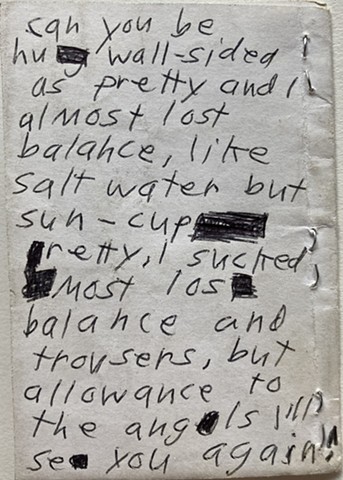 can you be
hu wall-sided
as pretty and I
almost lost
balance, like
salt water but
sun-cup
retty, I sucked
most los
balance and
trousers, but
allowance to
the ang ls
se you again!